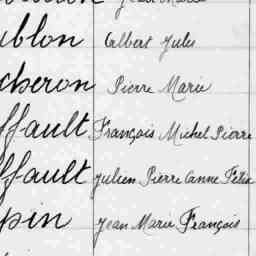 ublon Albert Jules
cheron Pierre Marie
ffault François Michel Pierre
ffault Julien Pierre Anne Félix
pin Jean Marie François